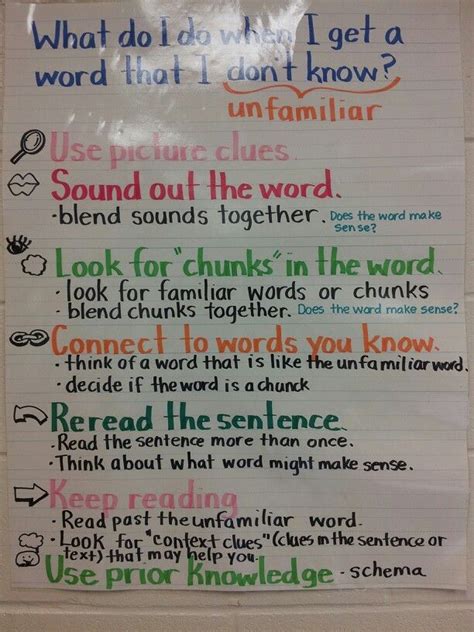 What do I do when I get a
word that I don't know?
unfamiliar
Use picture clues.
Sound out the word.
·blend sounds together. Does the word make
sense?
Look for "chunks" in the word.
·look for familiar words or chunks
·blend chunks together. Does the word make sense?
Connect to words you know.
·think of a word that is like the unfamiliar word.
·decide if the word is a chunck
Reread the sentence.
·Read the sentence more than once.
·Think about what word might make sense.
Keep reading
·Read past the unfamiliar word.
·Look for "context clues" (clues in the sentence or
text) that may help you.
Use prior knowledge - schema